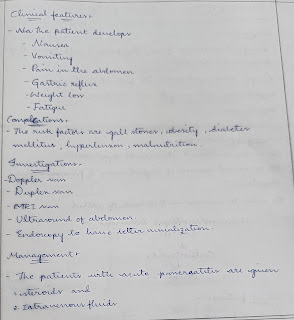 Clinical features:-
- Na the patient develops
- Nausea
- Vomiting
- Pain in the abdomen
- Gastric reflux
- Weight loss
- Fatigue
- The risk factors are gall stones, obesity, diabetes
mellitus, hypertension, malnutrition.
Investigations:-
- Doppler scan
- Duplex scan
- MRI scan
- Ultrasound of abdomen
- Endoscopy to have better visualization.
Management:-
- The patients with acute pancreatitis are given
1. steroids and
2. Intravenous fluids